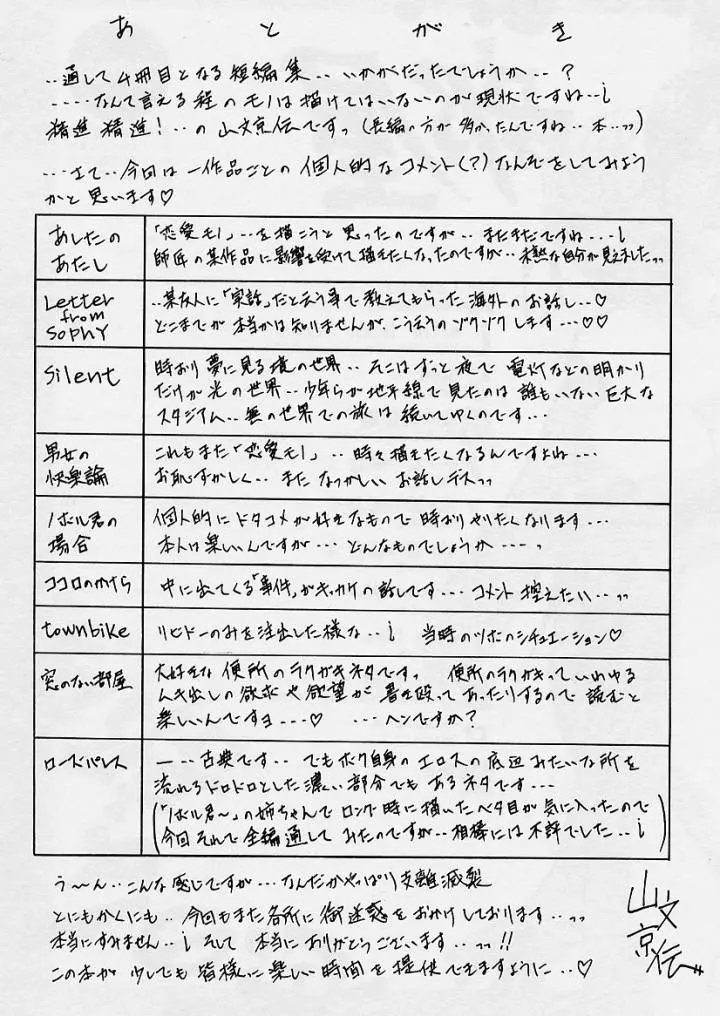 あとがき
‥通して4冊目となる短編集‥いかがだったでしょうか‥?
‥‥なんて言える程のモノは描けてはいないのが現状ですね‥¡
精進精進!‥の山文京伝ですっ(長編の方が多かったんですね‥本‥ッッ)
‥さて‥今回は一作品ごとの個人的なコメント(?)なんぞをしてみよう
かと思います♡
あしたの
あたし
「恋愛モノ」‥を描こうと思ったのですが‥まだまだですね‥‥¡
師匠の某作品に影響を受けて描きたくなったのですが‥未熟な自分が見えましたッッ
Letter
from
SOPHY
‥某友人に「実話」だと云う事で教えてもらった海外のお話し‥♡
どこまでが本当かは知りませんが、こう云うのゾクゾクします‥♡♡
Silent
時おり夢に見る境の世界‥そこはずっと夜で電灯などの明かり
だけが光の世界‥少年らが地平線で見たのは誰もいない巨大な
スタジアム‥無の世界での旅は続いてゆくのです‥
男女の
快楽論
これもまた「恋愛モノ」‥時々描きたくなるんですよね‥‥
お恥ずかしく‥また なつかしい お話しデスッッ
ノボル君の
場合
個人的にドタコメが好きなもので時おりやりたくなります‥‥
本人は楽しいんですが‥‥どんなものでしょうか‥‥っ
ココロのカケラ
中に出てくる「事件」がキッカケの話しです‥‥コメント控えたい‥ッッ
townbike
リビドーのみを注出した様な‥¡ 当時のツボのシチュエーション♡
窓のない部屋
大好きな便所のラクガキネタですっ 便所のラクガキっていわゆる
ムキ出しの欲求や欲望が書き殴ってあったりするので読むと
楽しいんですョ‥‥♡ ‥‥ヘンですか?
ローズパレス
一‥古典です‥でもボク自身のエロスの底辺みたいな所を
流れるドロドロとした濃い部分でもあるネタです‥‥
(「ノボル君~」の姉ちゃんでロング時に描いたベタ目が気に入ったので
今回それで全編通してみたのですが‥相棒には不評でした‥¡)
う〜ん‥こんな感じですが‥なんだかやっぱり支離滅製
とにもかくにも‥今回もまた各所に御迷惑をおかけしております‥ッッ
本当にすみません‥¡ そして 本当にありがとうございます‥ッッ!!
この本が少しでも皆様に楽しい時間を提供できますように‥♡
山文
京伝